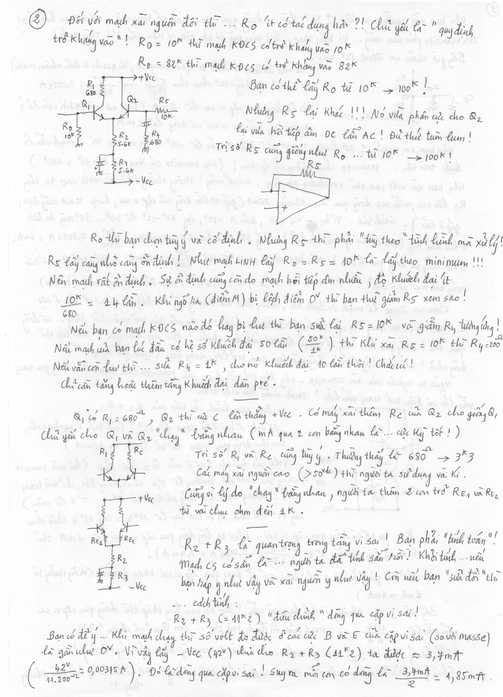 ②
Đối với mạch xài nguồn đôi thì ... Ro ít có tác dụng hơn ?! Chủ yếu là "quy định
trở kháng vào"! Ro = 10K thì mạch KĐCS có trở kháng vào 10K
Ro = 82K thì mạch KĐCS có trở kháng vào 82K
Bạn có thể lấy Ro từ 10K → 100K !
Nhưng R5 lại khác !!! Nó vừa phân cực cho Q2
lại vừa hồi tiếp âm DC lẫn AC ! Đủ thứ tùm lum !
Trị số R5 cũng giống như Ro ... từ 10K → 100K !
+Vcc
R1
680
Q1
Q2
Rc
10K
Ro
10K
R2
5.6K
R4
680
R3
5.6K
-Vcc
R5
Ro thì bạn chọn tùy ý và cố định. Nhưng R5 thì phải "tùy theo" tình hình mà xử lý !
R5 lấy càng nhỏ càng ổn định ! Như mạch lấy Ro = R5 = 10K là lấy theo minimum !!!
Nên mạch rất ổn định. Sự ổn định cũng còn do mạch hồi tiếp âm nhiều, độ khuếch đại ít
10K/680 = 14 lần. Khi ngõ ra (điểm M) bị lệch điểm 0V thì bạn thử giảm R5 xem sao !
Nếu bạn có mạch KĐCS nào đó hay bị hư thì bạn sửa lại R5 = 10K và giảm R4 tương ứng !
Nếu mạch của bạn lúc đầu có hệ số khuếch đại 50 lần (50K/1K) thì khi xài R5 = 10K thì R4 = 200
Nếu vẫn còn hư thì ... sửa R4 = 1K, cho nó khuếch đại 10 lần thôi !
Chỉ cần tăng hoặc thêm tầng khuếch đại dần pré.
Q1 có R1 = 680Ω, Q2 thì cực C lên thẳng +Vcc. Có máy xài thêm Rc của Q2 cho giống Q1
Chủ yếu cho Q1 và Q2 "chạy" bằng nhau (mA qua 2 con bằng nhau là ... cực kỳ tốt !)
R1
Rc
Trị số R1 và Rc cũng tùy ý. Thường thấy là 680Ω → 3K3
Các máy xài nguồn cao (>50Vdc) thì người ta sử dụng vài K.
Cũng vì lý do "chạy" bằng nhau, người ta thêm 2 con trở RE1 và RE2
từ vài chục ohm đến 1K.
+Vcc
RE1
RE2
R2
R3
-Vcc
R2 + R3 là quan trọng trong tầng vi sai ! Bạn phải "tính toán" !
Mạch CS có sẵn là ... người ta đã tính sẵn rồi ! Khỏi tính ... nếu
bạn ráp y như vậy và xài nguồn y như vậy ! Còn nếu bạn "sửa đổi" thì
... cách tính :
R2 + R3 (= 11K2) "điều chỉnh" dòng qua cặp vi sai !
Bạn có để ý - Khi mạch chạy thì số volt đo được ở các cực B và E của cặp vi sai (so với masse)
là gần như 0V. Vì vậy lấy -Vcc (42V) chia cho R2 + R3 (11K2) ta được ≈ 3,7mA
(42V/11.200Ω = 0,00375A). Đó là dòng qua cặp vi sai ! Suy ra mỗi con có dòng là 3,7mA/2 = 1,85mA.